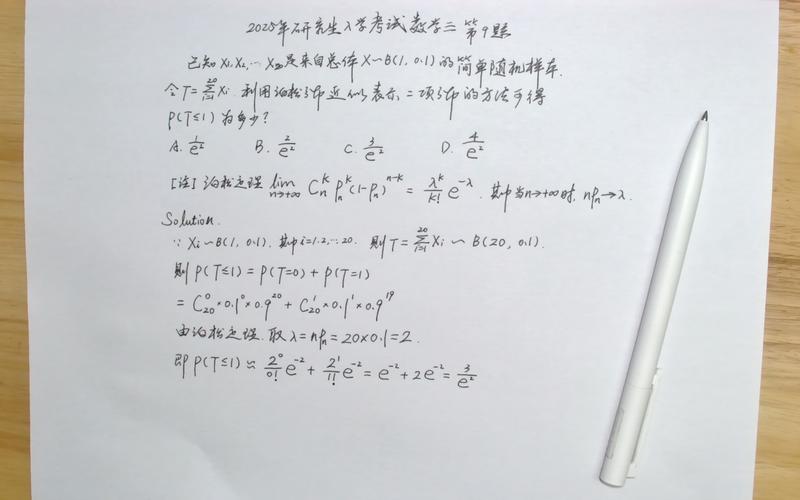 2025年研究生入学考试数学三 第9题
已知 X₁, X₂, … X₂₀是来自总体 X~B(1, 0.1)的简单随机样本.
令 T = ∑_{i=1}^{20} Xi. 利用泊松分布近似表示二项分布的方法可得
P(T≤1) 为多少?
A. 1/e² B. 2/e² C. 3/e² D. 4/e²
[注] 泊松定理 lim_{n→+∞} C_n^k p_n^k (1-p_n)^{n-k} = λ^k/k! e^{-λ}. 其中当n→+∞时, np_n→λ.
Solution.
∵ Xi ~ B(1, 0.1). 其中i=1.2,…20. 则 T = ∑_{i=1}^{20} Xi ~ B(20, 0.1).
则 P(T≤1) = P(T=0) + P(T=1)
= C_{20}^0 × 0.1^0 × 0.9^{20} + C_{20}^1 × 0.1^1 × 0.9^{19}
由泊松定理. 取 λ = np_n = 20×0.1 = 2.
即 P(T≤1) ≈ 2^0/0! e^{-2} + 2^1/1! e^{-2} = e^{-2} + 2e^{-2} = 3/e²